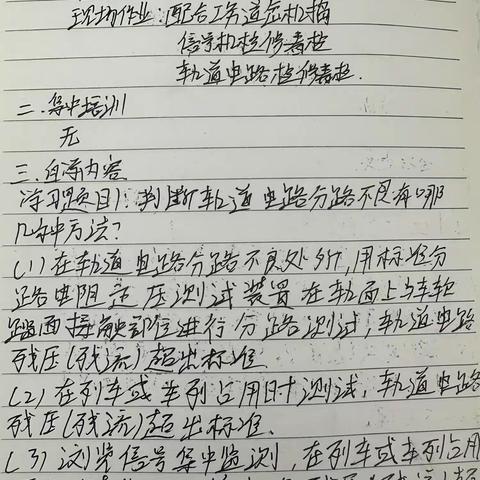 现场作业：配合工务道岔机捣
信号机检修毒检
轨道电路检修毒检.
二.集中培训
无
三.自学内容
学习项目1：判断轨道电路分路不良有哪
几种方法？
(1)在轨道电路分路不良处所,用标准分
路电阻 压测试装置在轨面上与车轮
踏面接触部位进行分路测试,轨道电路
残压(残流)超出标准.
(2)在列车或车列占用时测试,轨道电路
残压(残流)超出标准.
(3)浏览信号集中监测,在列车或车列占用